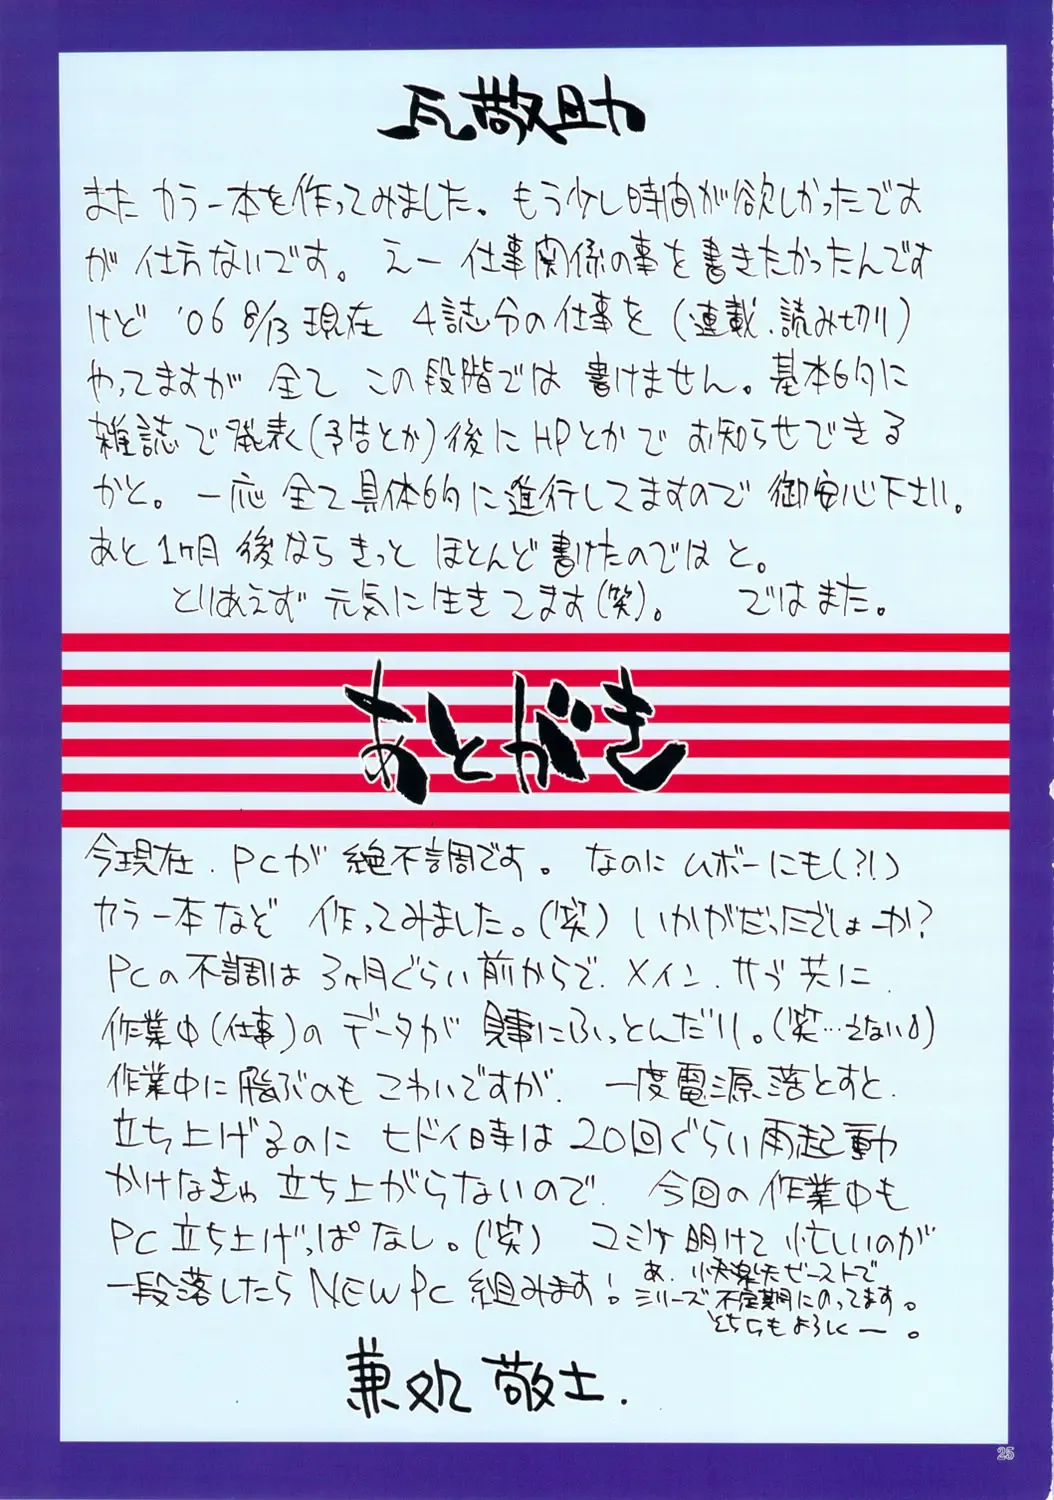 瓦敬助
また カラー本を作ってみました。もう少し時間が欲しかったです
が 仕方ないです。 えー 仕事関係の事を書きたかったんです
けど '06 8/13 現在 4誌分の仕事を (連載、読み切り)
やってますが 全て この段階では 書けません。基本的に
雑誌で発表(予告とか)後にHPとかで お知らせできる
かと。一応 全て具体的に進行してますので 御安心下さい。
あと1ヶ月後なら きっと ほとんど書けたのではと。
とりあえず 元気に生きてます(笑)。 ではまた。
あとがき
今現在、PCが 絶不調です。 なのに ムボーにも(?!)
カラー本など 作ってみました。(笑) いかがだったでしょーか?
PCの不調は 3ヶ月ぐらい前からで、メイン、サブ共に、
作業中(仕事)の データが 見事にふっとんだり。(笑…えない)
作業中に飛ぶのも こわいですが、 一度電源落とすと、
立ち上げるのに ヒドイ時は 20回ぐらい再起動
かけなきゃ 立ち上がらないので、 今回の作業中も
PC立ち上げっぱなし。(笑) コミケ明けて 忙しいのが
一段落したら NEW PC 組みます!
あ、快楽天ビーストで
シリーズ不定期にのってます。
こちらもよろしくー。
兼処 敬士.
25